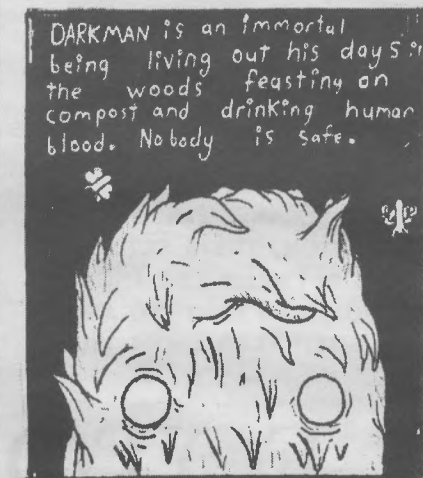 DARKMAN is an immortal
being living out his days in
the woods feasting on
compost and drinking human
blood. Nobody is safe.